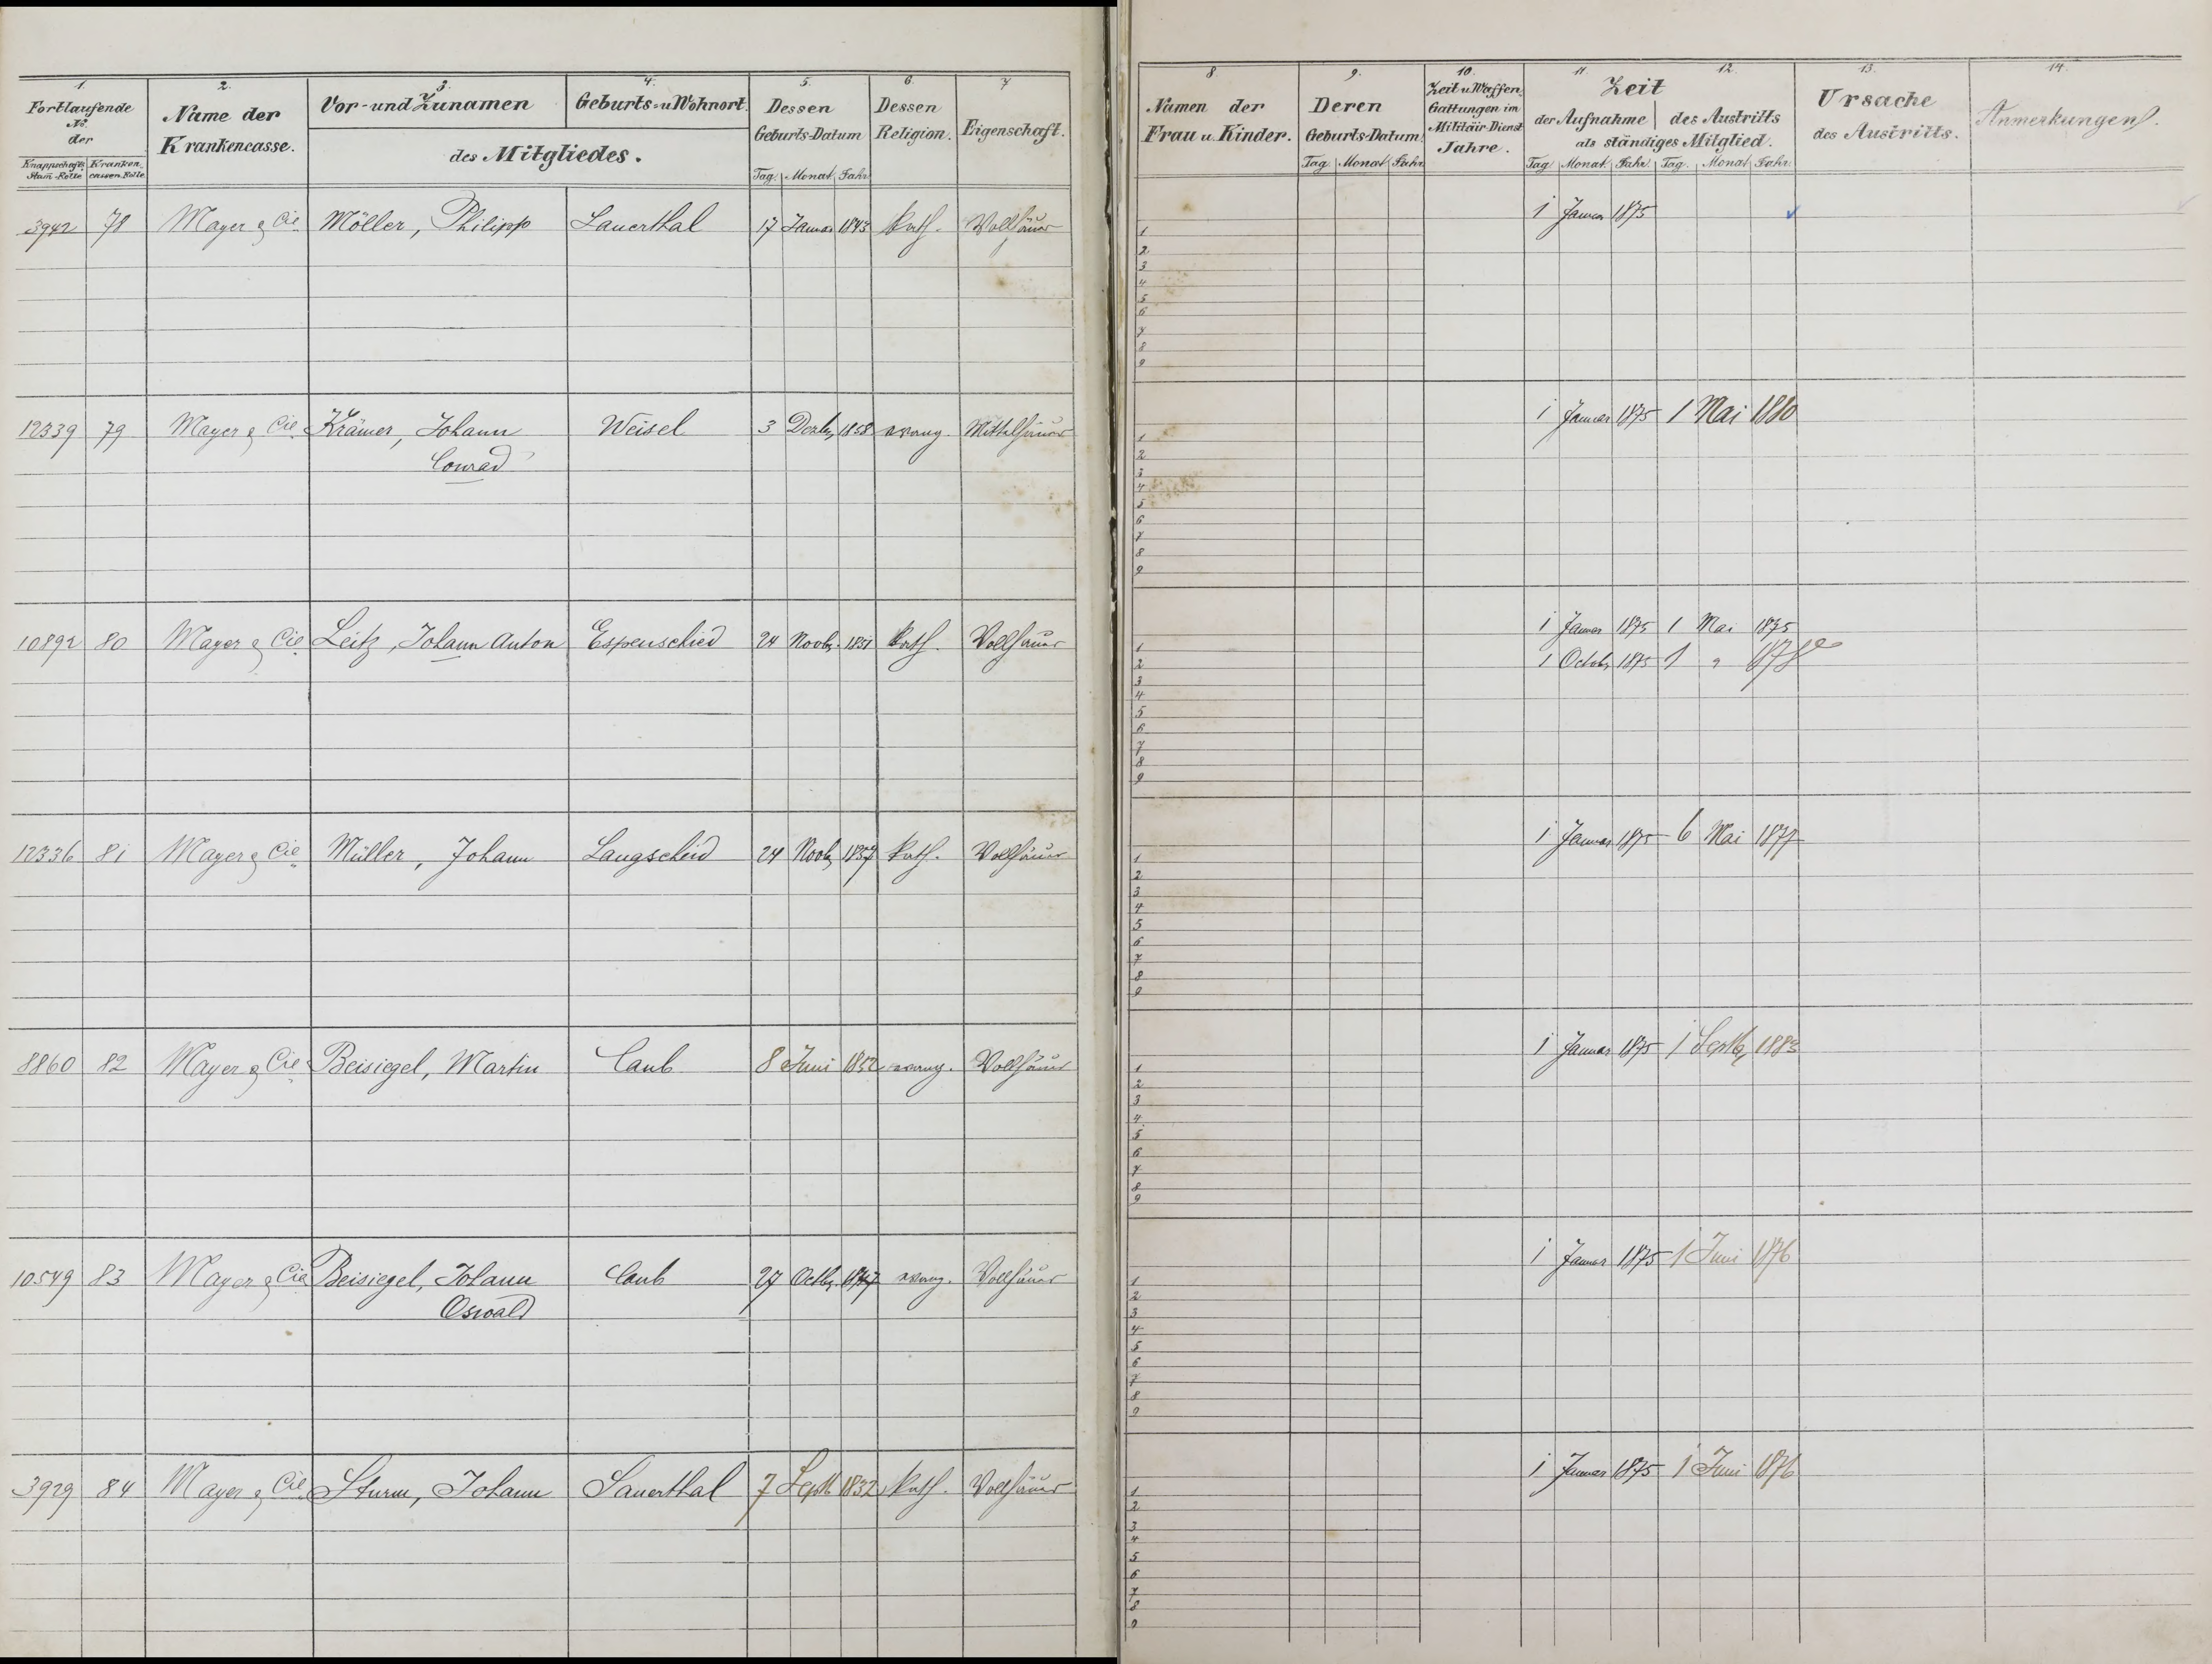 1. 2. 3. 4. 5. 6. 7.
Fortlaufende No. der
Knappschafts Stam-Rolle
Kranken cassen-Rolle
Name der Krankencasse.
Vor- und Zunamen
Geburts- u Wohnort.
des Mitgliedes.
Dessen Geburts-Datum
Tag. Monat. Jahr
Dessen Religion.
Eigenschaft.
3942 78 Mayer & Cie. Möller, Philipp Sauerthal 17 Januar 1843 kath. Vollhäuer
12339 79 Mayer & Cie. Krämer, Johann Weisel 3 Dezbr 1858 evang. Mittelhäuer
Conrad
10892 80 Mayer & Cie. Leitz, Johann Anton Espenschied 24 Novbr. 1851 kath. Vollhäuer
12336 81 Mayer & Cie Müller, Johann Langscheid 24 Novbr 1857 kath. Vollhäuer
8860 82 Mayer & Cie. Beisiegel, Martin Caub 8 Juni 1852 evang. Vollhäuer
10549 83 Mayer & Cie. Beisiegel, Johann Caub 27 Octbr. evang. Vollhäuer
Oswald
3929 84 Mayer & Cie. Sturm, Johann Sauerthal 7 Septb. 1832 kath. Vollhäuer
8. 9. 10. 11. 12. 13. 14.
Namen der Frau u. Kinder.
Deren Geburts-Datum
Tag. Monat. Jahr
Zeit u. Waffen Gattungen im Militair-Dienst Jahre.
Zeit
der Aufnahme des Austritts
als ständiges Mitglied.
Tag Monat Jahr. Tag. Monat. Jahr.
Ursache des Austritts.
Anmerkungen.
1 Januar 1875
1
2
3
4
5
6
7
8
9
1 Januar 1875 1 Mai 1880
1
2
3
4
5
6
7
8
9
1 Januar 1875 1 Mai 1875
1
1 Octobr 1875 1 " 1878
2
3
4
5
6
7
8
9
1 Januar 1875 6 Mai 1877
1
2
3
4
5
6
7
8
9
1 Januar 1875 1 Septbr 1883
1
2
3
4
5
6
7
8
9
1 Januar 1875 1 Juni 1876
1
2
3
4
5
6
7
8
9
1 Januar 1875 1 Juni 1876
1
2
3
4
5
6
7
8
9